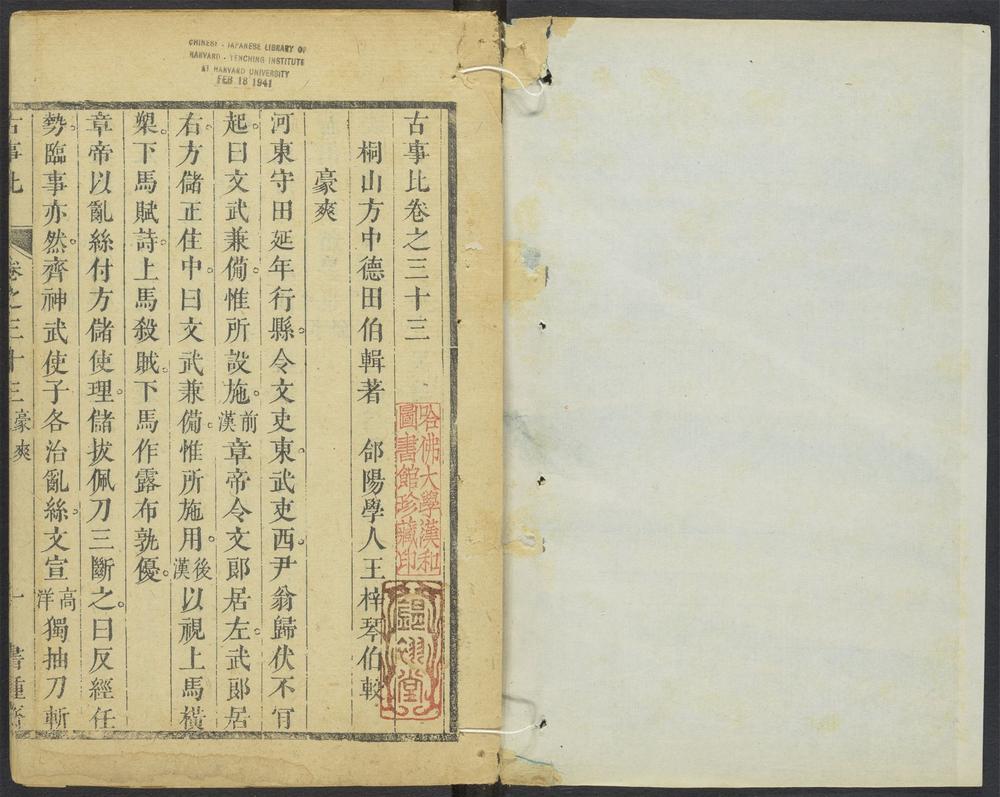 CHINESE - JAPANESE LIBRARY OF
HARVARD - YENCHING INSTITUTE
AT HARVARD UNIVERSITY
FEB 18 1941
古事比卷之三十三
桐山方中德田伯輯著　郃陽學人王梓琴伯較
豪爽
河東守田延年行縣。令文吏東。武吏西。尹翁歸伏不肯
起。曰文武兼備。惟所設施。前漢章帝令文郞居左。武郞居
右。方儲正住中。曰文武兼備。惟所施用。後漢以視上馬橫
槊。下馬賦詩。上馬殺賊。下馬作露布孰優。
章帝以亂絲付方儲使理。儲拔佩刀三斷之。曰反經任
勢。臨事亦然。齊神武使子各治亂絲。文宣高洋獨抽刀斬
古事比　卷之三十三豪爽　一　書種齋
哈佛大學漢和
圖書館珍藏印